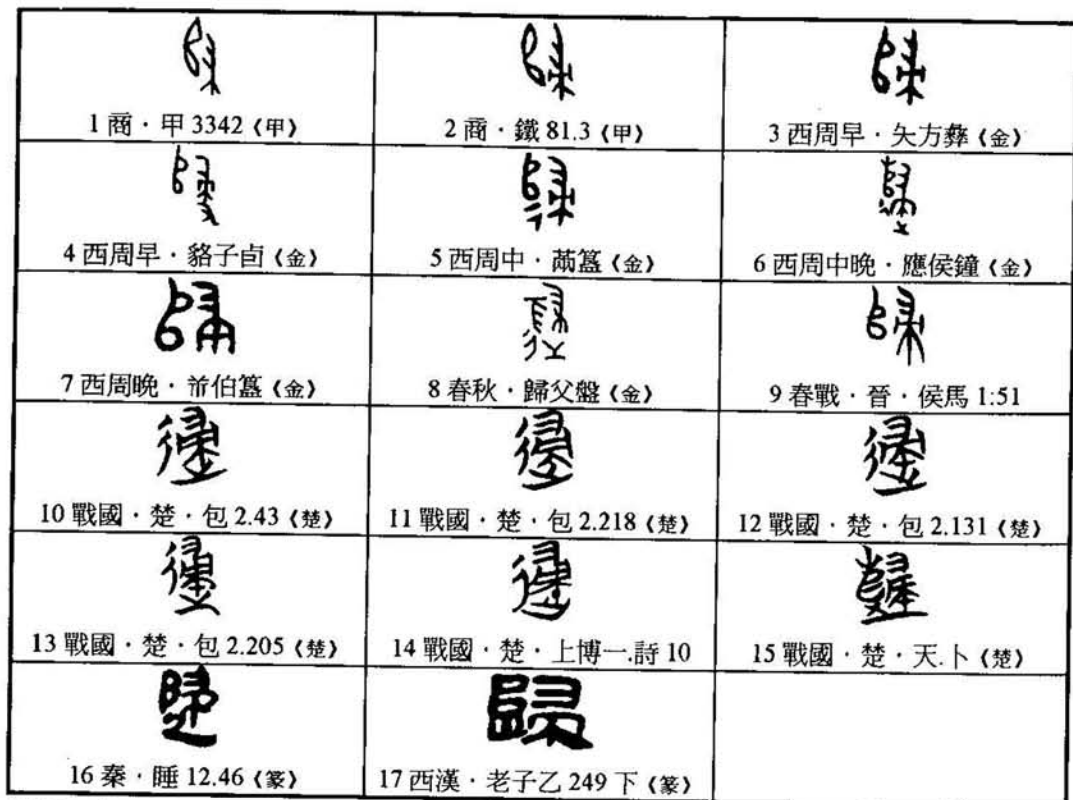 1 商．甲 3342《甲》
2 商．鐵 81.3《甲》
3 西周早．夨方彝《金》
4 西周早．貉子卣《金》
5 西周中．𦅫簋《金》
6 西周中晚．應侯鐘《金》
7 西周晚．伯簋《金》
8 春秋．歸父盤《金》
9 春戰．晉．侯馬 1:51
10 戰國．楚．包 2.43《楚》
11 戰國．楚．包 2.218《楚》
12 戰國．楚．包 2.131《楚》
13 戰國．楚．包 2.205《楚》
14 戰國．楚．上博一.詩 10
15 戰國．楚．天.卜《楚》
16 秦．睡 12.46《篆》
17 西漢．老子乙 249 下《篆》